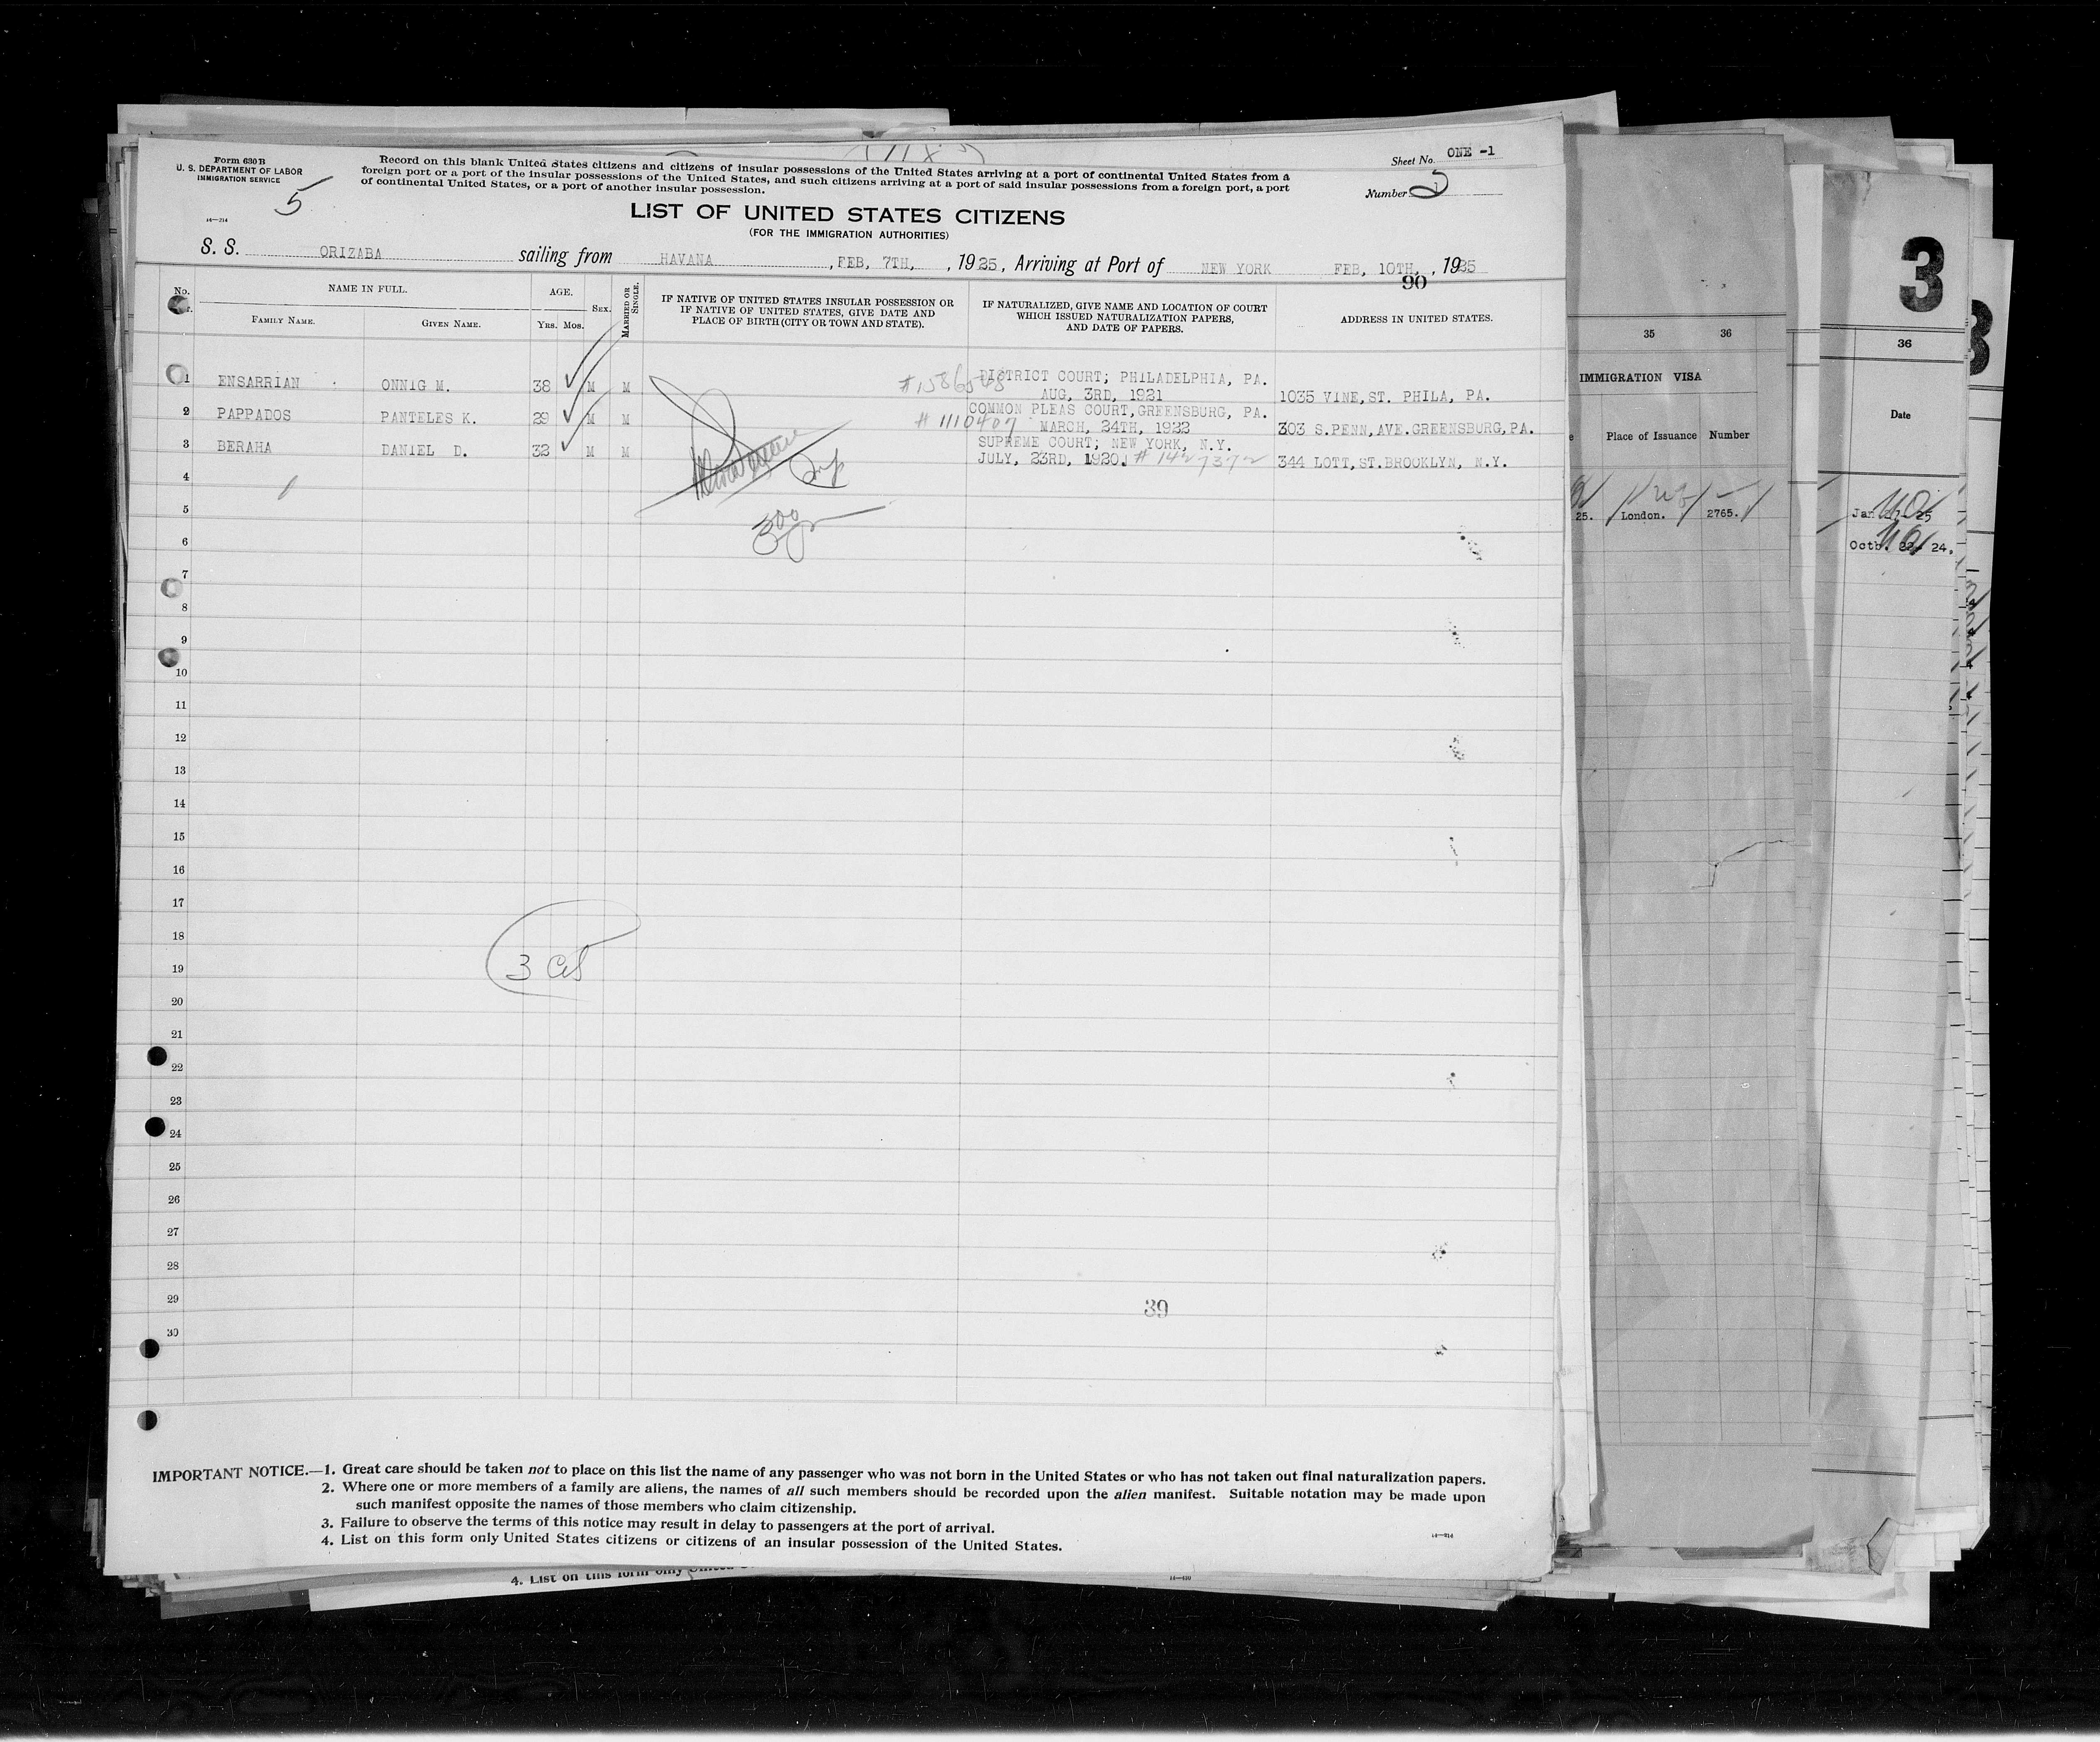 Form 630 B
U. S. DEPARTMENT OF LABOR
IMMIGRATION SERVICE
5
14—214
Record on this blank United States citizens and citizens of insular possessions of the United States arriving at a port of continental United States from a
foreign port or a port of the insular possessions of the United States, and such citizens arriving at a port of said insular possessions from a foreign port, a port
of continental United States, or a port of another insular possession.
Sheet No. ONE -1
Number
LIST OF UNITED STATES CITIZENS
(FOR THE IMMIGRATION AUTHORITIES)
S. S. ORIZABA sailing from HAVANA , FEB, 7TH, , 1925, Arriving at Port of NEW YORK FEB, 10TH, , 1925
90
No.
NAME IN FULL.
FAMILY NAME.
GIVEN NAME.
AGE.
YRS. MOS.
SEX.
MARRIED OR SINGLE.
IF NATIVE OF UNITED STATES INSULAR POSSESSION OR
IF NATIVE OF UNITED STATES, GIVE DATE AND
PLACE OF BIRTH (CITY OR TOWN AND STATE).
IF NATURALIZED, GIVE NAME AND LOCATION OF COURT
WHICH ISSUED NATURALIZATION PAPERS,
AND DATE OF PAPERS.
ADDRESS IN UNITED STATES.
1 ENSARRIAN ONNIG M. 38 M M DISTRICT COURT; PHILADELPHIA, PA.
AUG, 3RD, 1921 1035 VINE,ST. PHILA, PA.
2 PAPPADOS PANTELES K. 29 M M COMMON PLEAS COURT,GREENSBURG, PA.
# 1110407 MARCH, 24TH, 1922 303 S.PENN,AVE.GREENSBURG,PA.
3 BERAHA DANIEL D. 32 M M SUPREME COURT; NEW YORK, N.Y.
JULY, 23RD, 1920. 344 LOTT,ST.BROOKLYN, N.Y.
4
5
6
7
8
9
10
11
12
13
14
15
16
17
18
3
19
20
21
22
23
24
25
26
27
28
29
39
30
IMPORTANT NOTICE.—1. Great care should be taken not to place on this list the name of any passenger who was not born in the United States or who has not taken out final naturalization papers.
2. Where one or more members of a family are aliens, the names of all such members should be recorded upon the alien manifest. Suitable notation may be made upon
such manifest opposite the names of those members who claim citizenship.
3. Failure to observe the terms of this notice may result in delay to passengers at the port of arrival.
4. List on this form only United States citizens or citizens of an insular possession of the United States.
14—214
4. List on this form only
35 36
IMMIGRATION VISA
Place of Issuance Number
25. London. 2765.
3
36
Date
24.